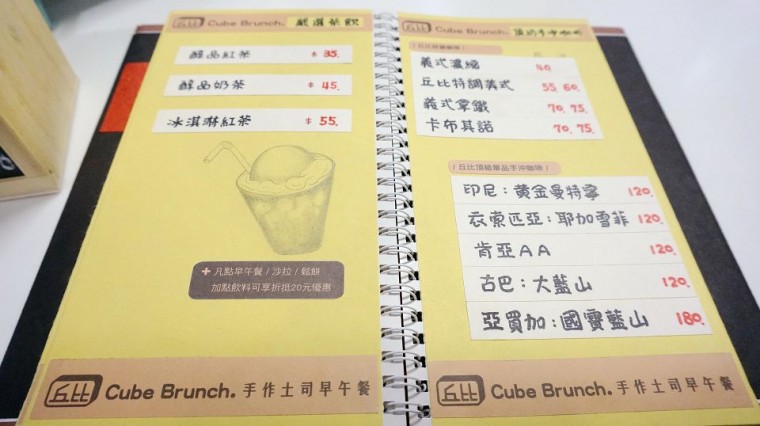 丘比 Cube Brunch. 嚴選茶飲
醇品紅茶 $ 35.
醇品奶茶 $ 45.
冰淇淋紅茶 $ 55.
+ 凡點早午餐 / 沙拉 / 鬆餅
加點飲料可享折抵20元優惠
丘比 Cube Brunch. 手作土司早午餐
丘比 Cube Brunch. 頂的手沖咖啡
義式濃縮 40.
丘比特調美式 55. 60.
義式拿鐵 70. 75.
卡布其諾 70. 75.
/ 丘比頂級單品手沖咖啡 /
印尼：黃金曼特寧 120.
衣索匹亞：耶加雪菲 120.
肯亞AA 120.
古巴：大藍山 120.
亞買加：國寶藍山 180.
丘比 Cube Brunch. 手作土司早午餐